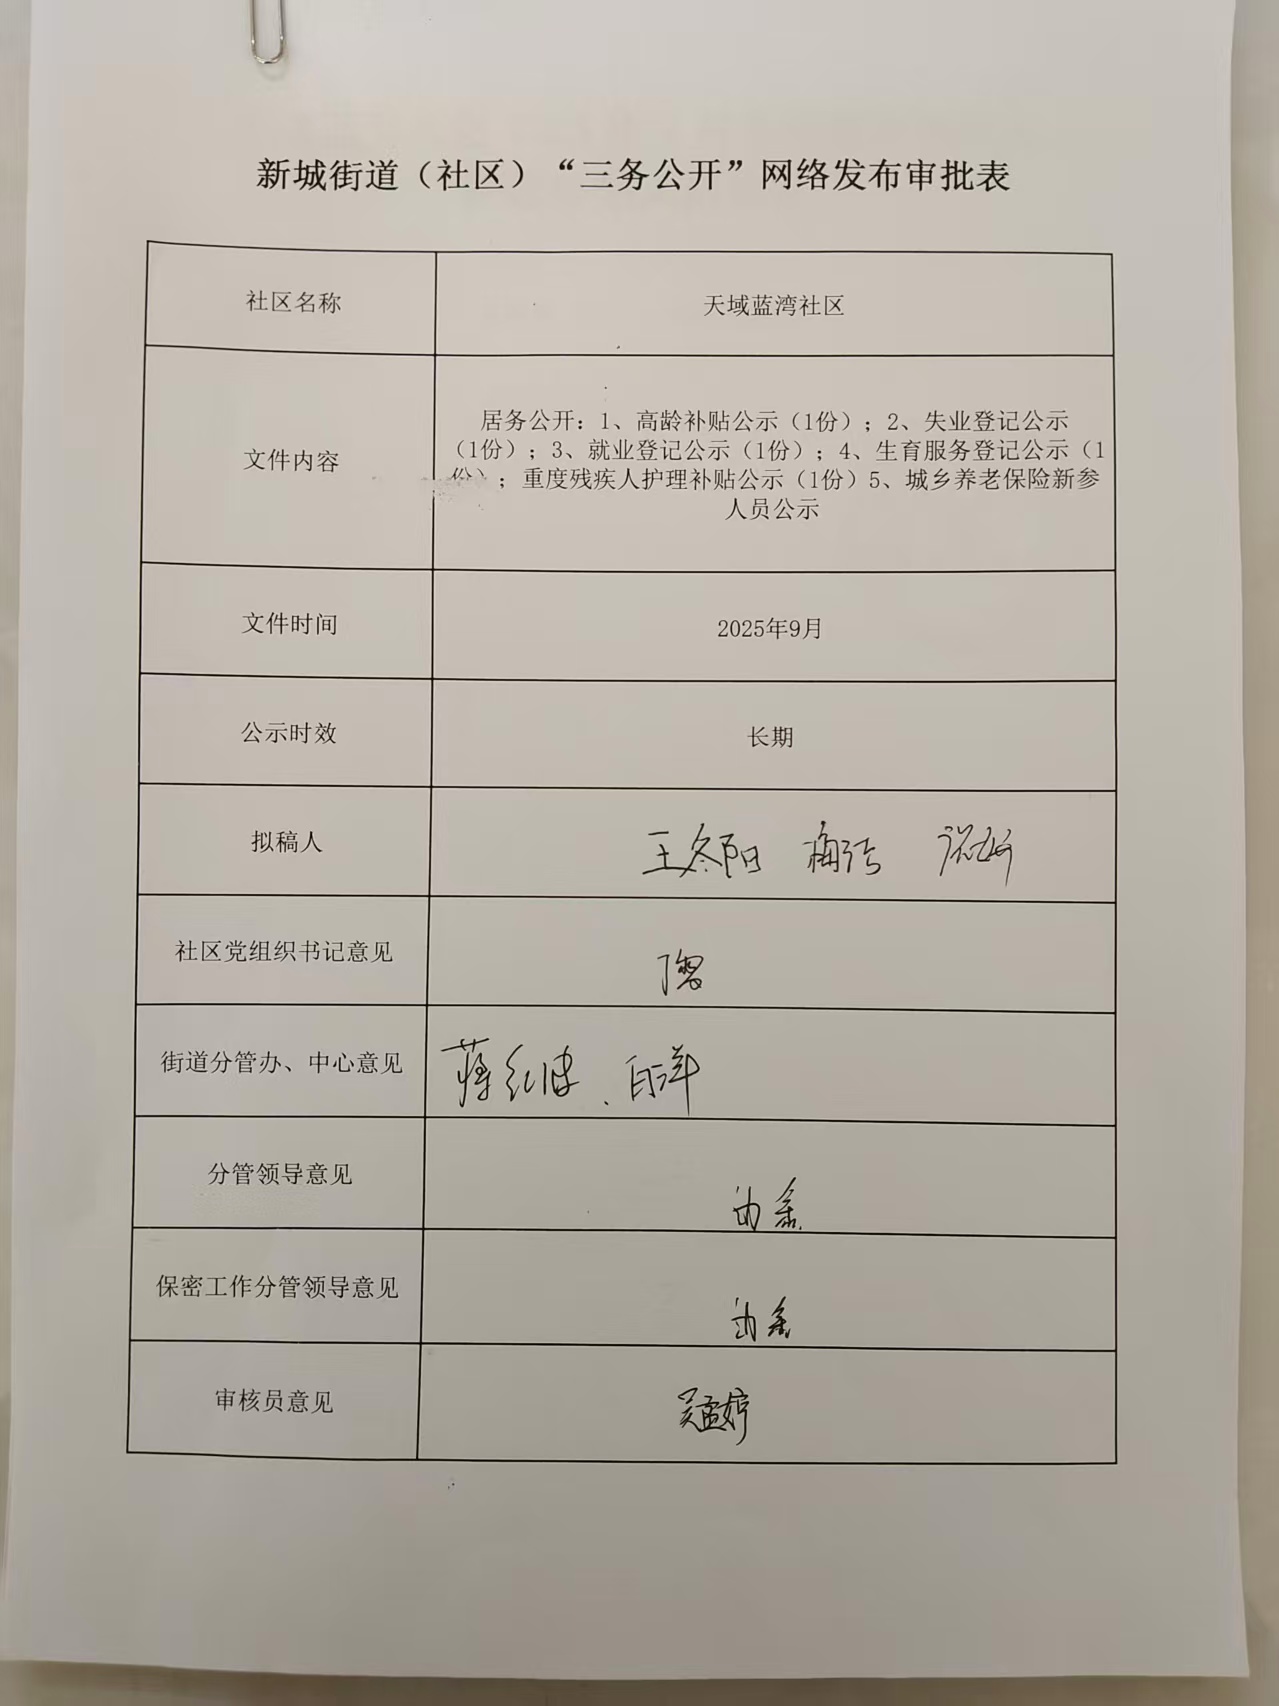 新城街道（社区）“三务公开”网络发布审批表
社区名称
天域蓝湾社区
文件内容
居务公开：1、高龄补贴公示（1份）；2、失业登记公示
（1份）；3、就业登记公示（1份）；4、生育服务登记公示（1
份）；重度残疾人护理补贴公示（1份）5、城乡养老保险新参
人员公示
文件时间
2025年9月
公示时效
长期
拟稿人
王冬阳 梅洁
社区党组织书记意见
街道分管办、中心意见
分管领导意见
保密工作分管领导意见
审核员意见
吴孟婷